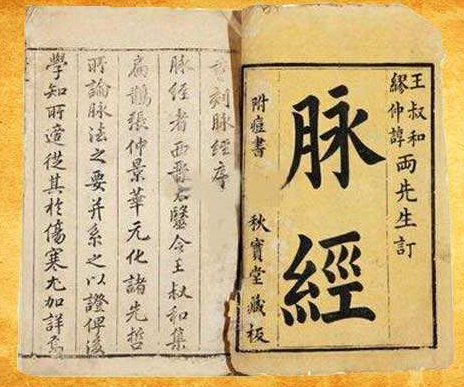 王叔和
繆仲諄
兩先生訂
脉經
附痘書
秋寶堂藏板
刻脉經序
脉經者西晉醫令王叔和集
扁鵲張仲景華元化諸先哲
所論脉法之要并系之以證俾後
學知所適從其於傷寒尤加詳焉